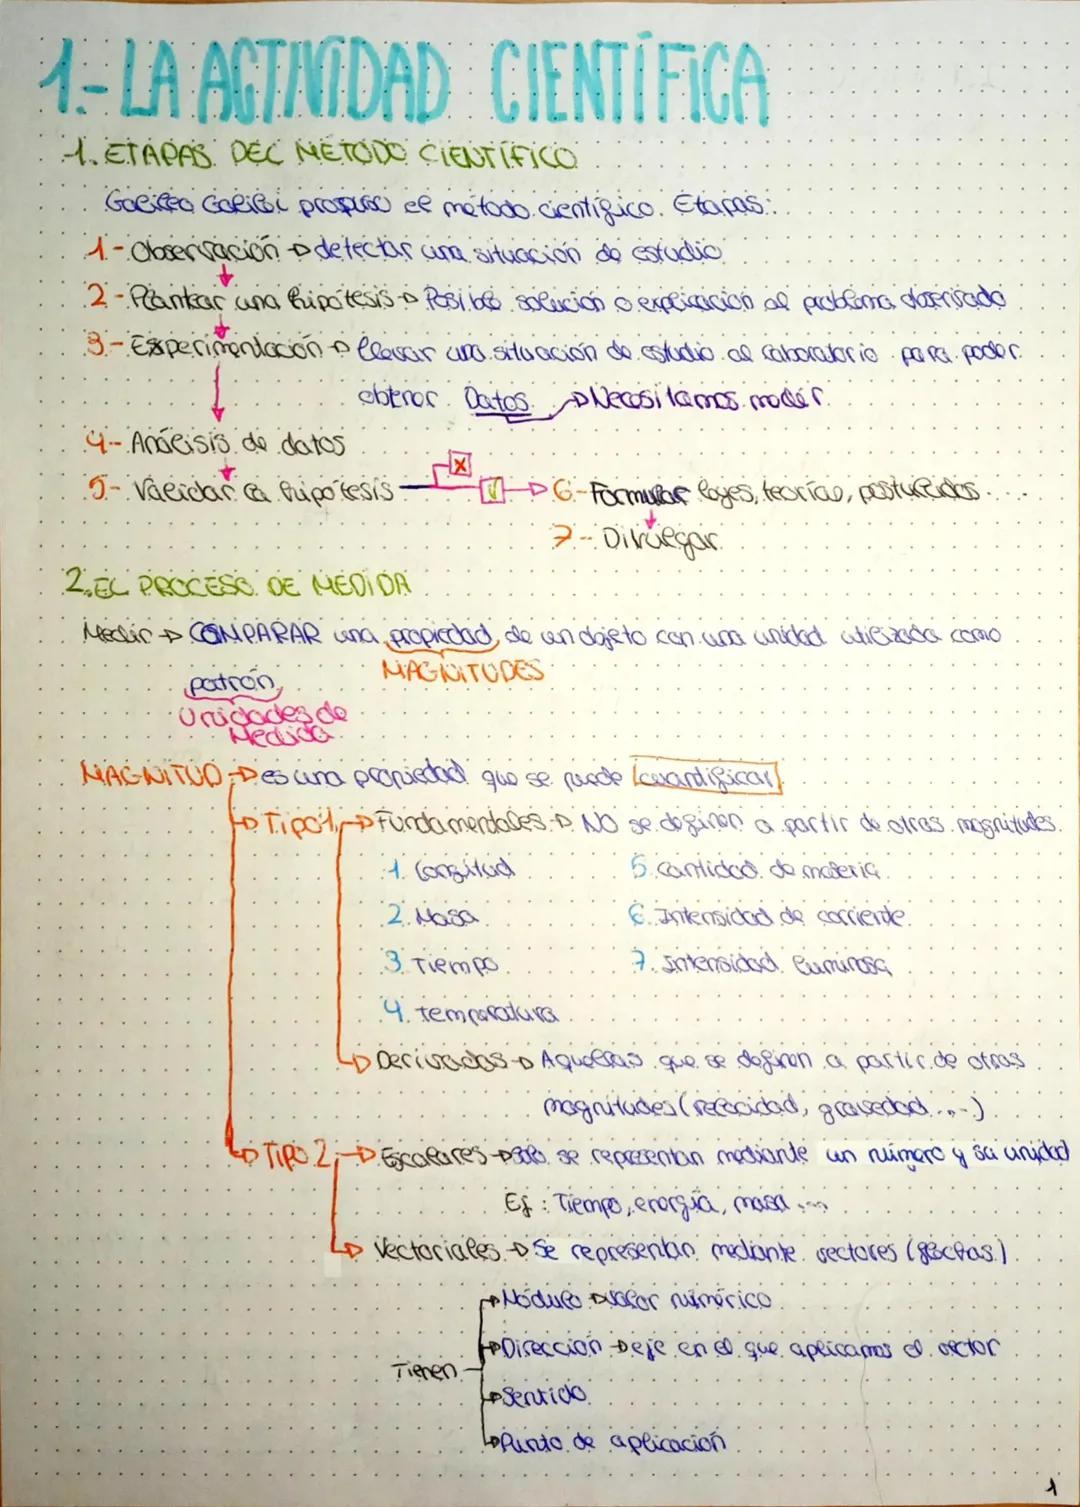 1.- LA ACTIVIDAD CIENTÍFICA
1. ETAPAS DEL MÉTODO CIENTÍFICO
Galileo Galilei propuso el método científico. Etapas:
1- Observación → detectar una situación de estudio
2- Plantear una hipótesis → Posible solución o explicación al problema observado
3- Experimentación → llevar una situación de estudio al laboratorio para poder
obtener Datos → Necesitamos medir.
4- Análisis de datos
5- Validar la hipótesis x ✓ → 6- Formular leyes, teorías, postulados....
7- Divulgar
2. EL PROCESO DE MEDIDA
Medir → COMPARAR una propiedad de un objeto con una unidad utilizada como
MAGNITUDES
patrón
Unidades de
Medida
MAGNITUD → es una propiedad que se puede cuantificar
→ Tipo 1 → Fundamentales → NO se definen a partir de otras magnitudes.
1. Longitud 5. Cantidad de materia
2. Masa 6. Intensidad de corriente.
3. Tiempo 7. Intensidad luminosa
4. temperatura
→ Derivadas → Aquellas que se definen a partir de otras
magnitudes (velocidad, gravedad...)
→ TIPO 2 → Escalares → solo se representan mediante un número y su unidad
Ej: Tiempo, energía, masa...
→ Vectoriales → Se representan mediante vectores (flechas)
→ Módulo → valor numérico
→ Dirección → eje en el que aplicamos el vector
Tienen
→ Sentido
→ Punto de aplicación
1